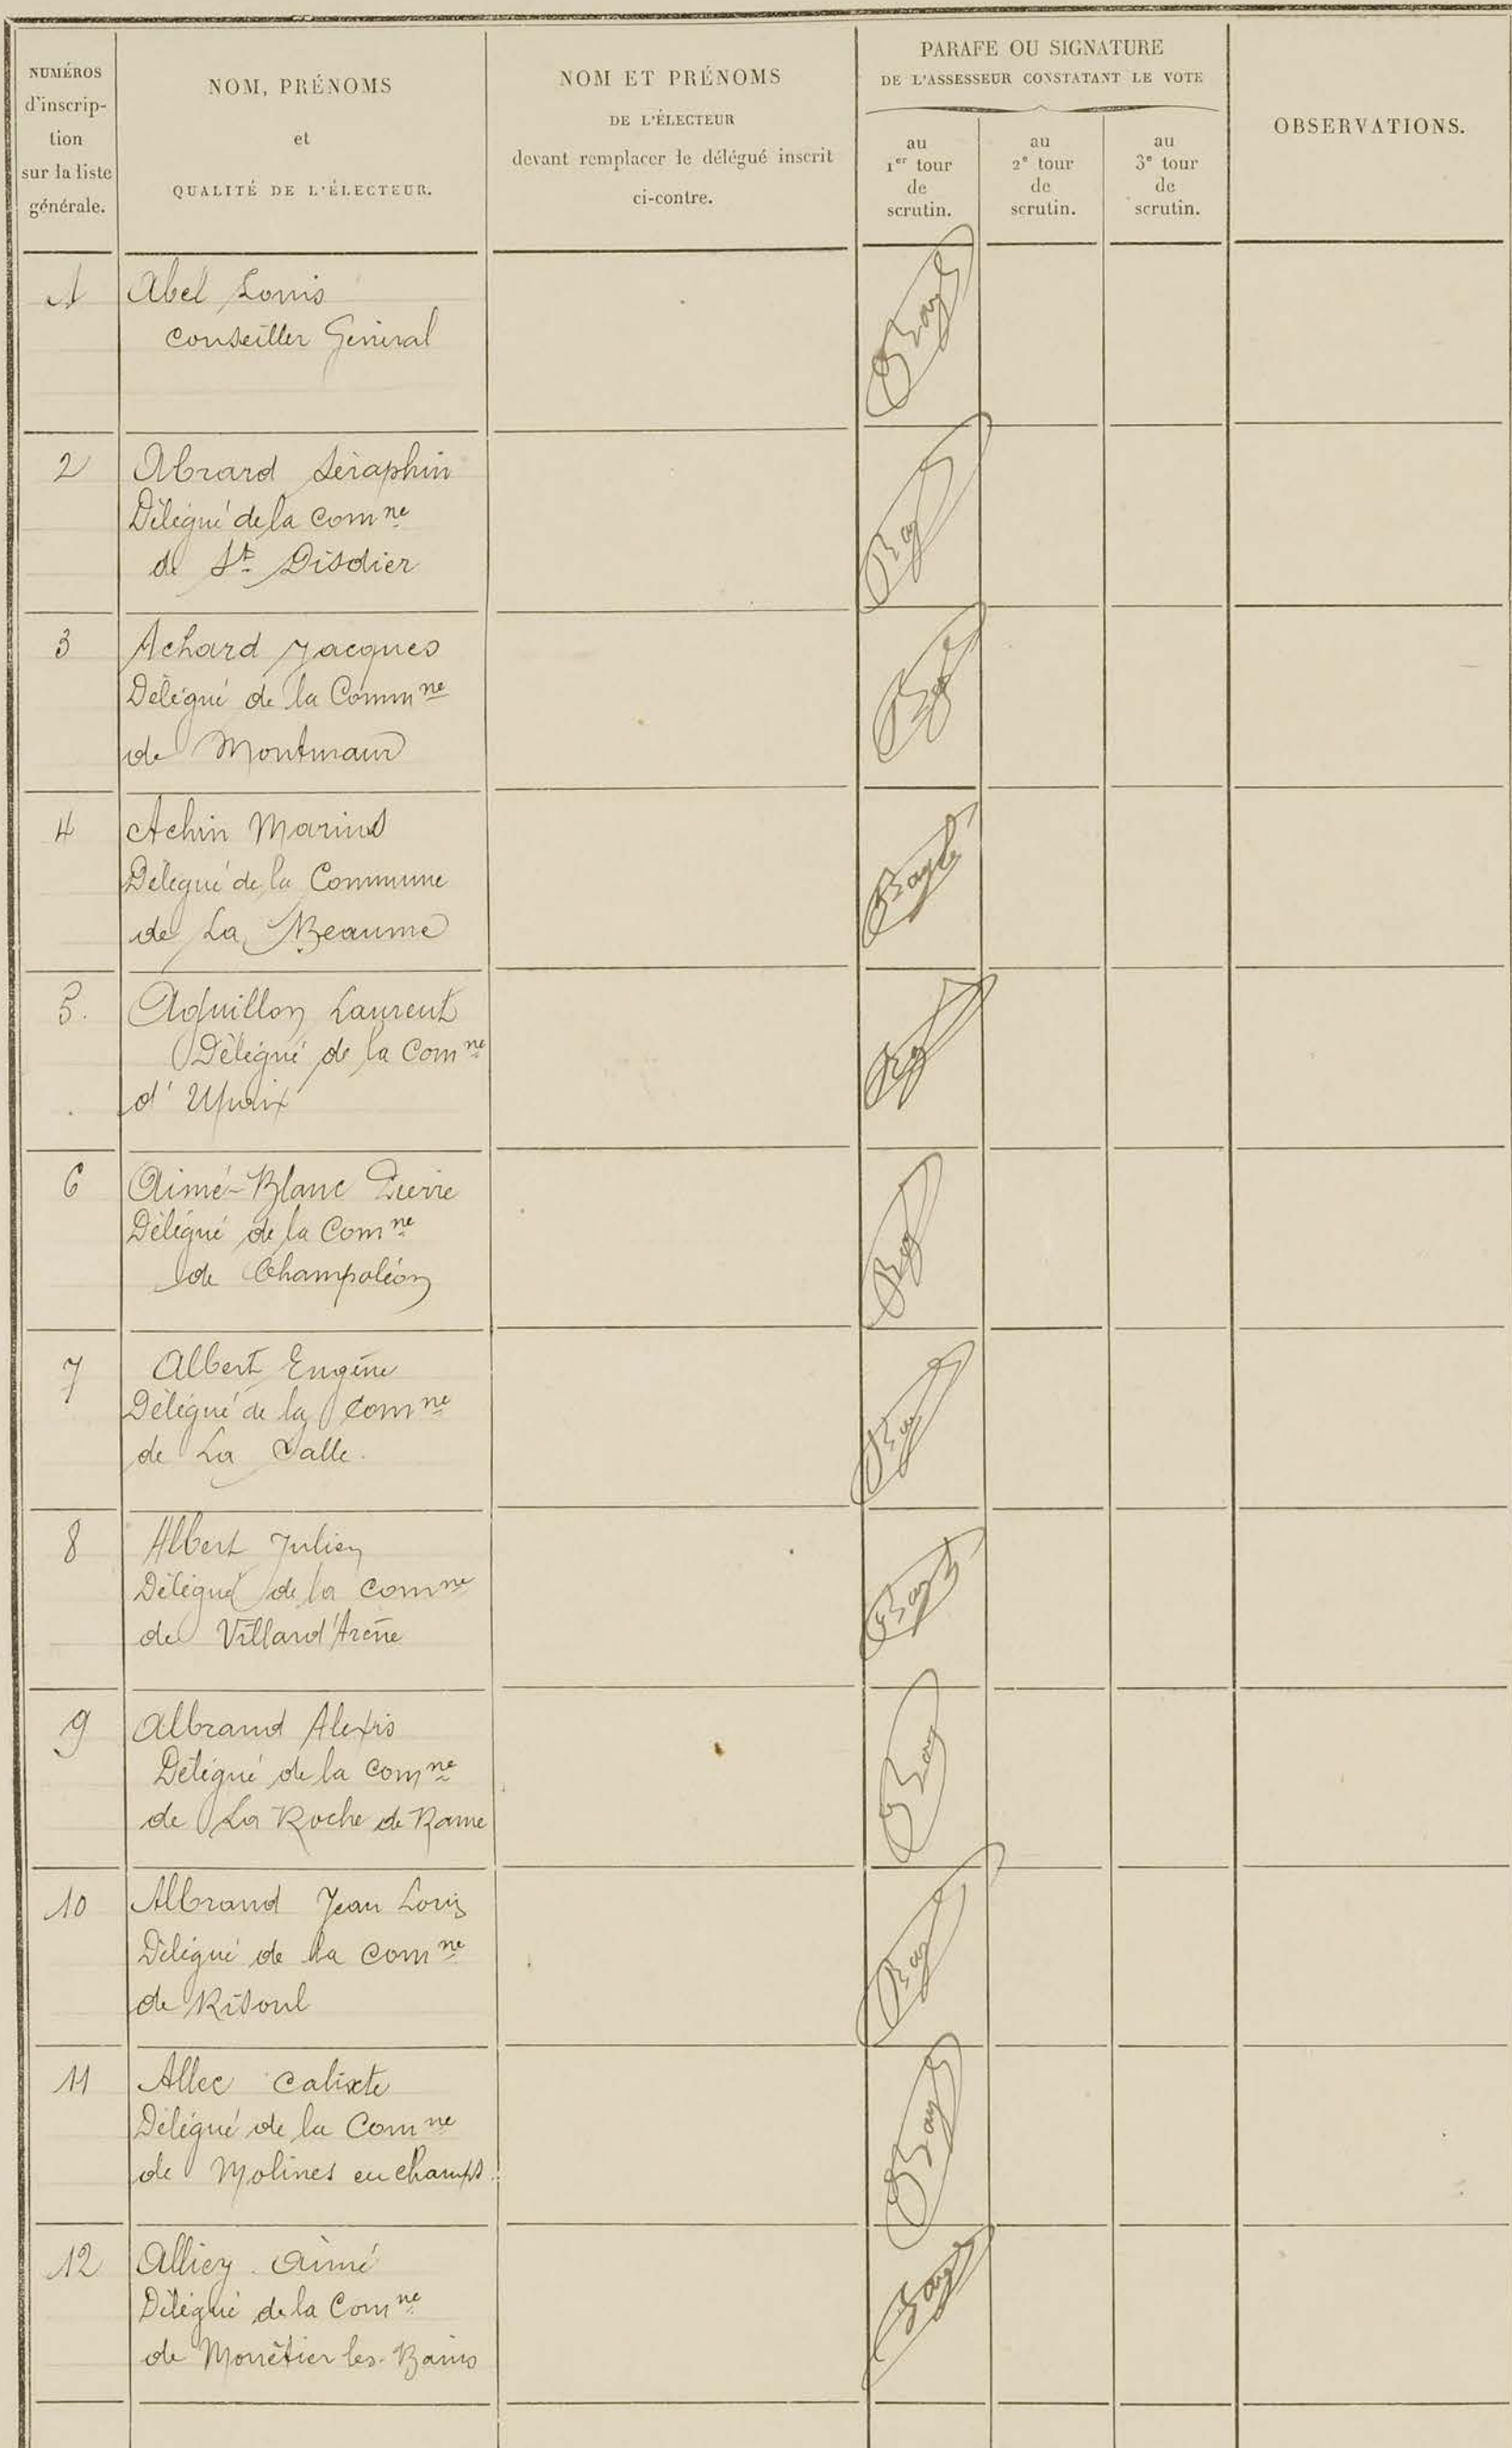 NUMÉROS
d'inscrip-
tion
sur la liste
générale.
NOM, PRÉNOMS
et
QUALITÉ DE L'ÉLECTEUR.
NOM ET PRÉNOMS
DE L'ÉLECTEUR
devant remplacer le délégué inscrit
ci-contre.
PARAFE OU SIGNATURE
DE L'ASSESSEUR CONSTATANT LE VOTE
au
1er tour
de
scrutin.
au
2e tour
de
scrutin.
au
3e tour
de
scrutin.
OBSERVATIONS.
1 Abel Louis
Conseiller Général
2 Abrard Séraphin
Délégué de la Comne
de St Disdier
3 Achard Jacques
Délégué de la Commne
de Montmaur
4 Achin Marius
Délégué de la Commune
de La Beaume
5. Aguillon Laurent
Délégué de la Comne
d'Upaix
6 Aimé-Blanc Pierre
Délégué de la Comne
de Champoléon
7 Albert Eugène
Délégué de la Comne
de La Salle.
8 Albert Julien
Délégué de la Comne
de Villard'Arène
9 Albrand Alexis
Délégué de la Comne
de La Roche de Rame
10 Albrand Jean Louis
Délégué de la Comne
de Risoul
11 Allec Calixte
Délégué de la Comne
de Molines en champs.
12 Alliey Aimé
Délégué de la Comne
de Monêtier les-Bains